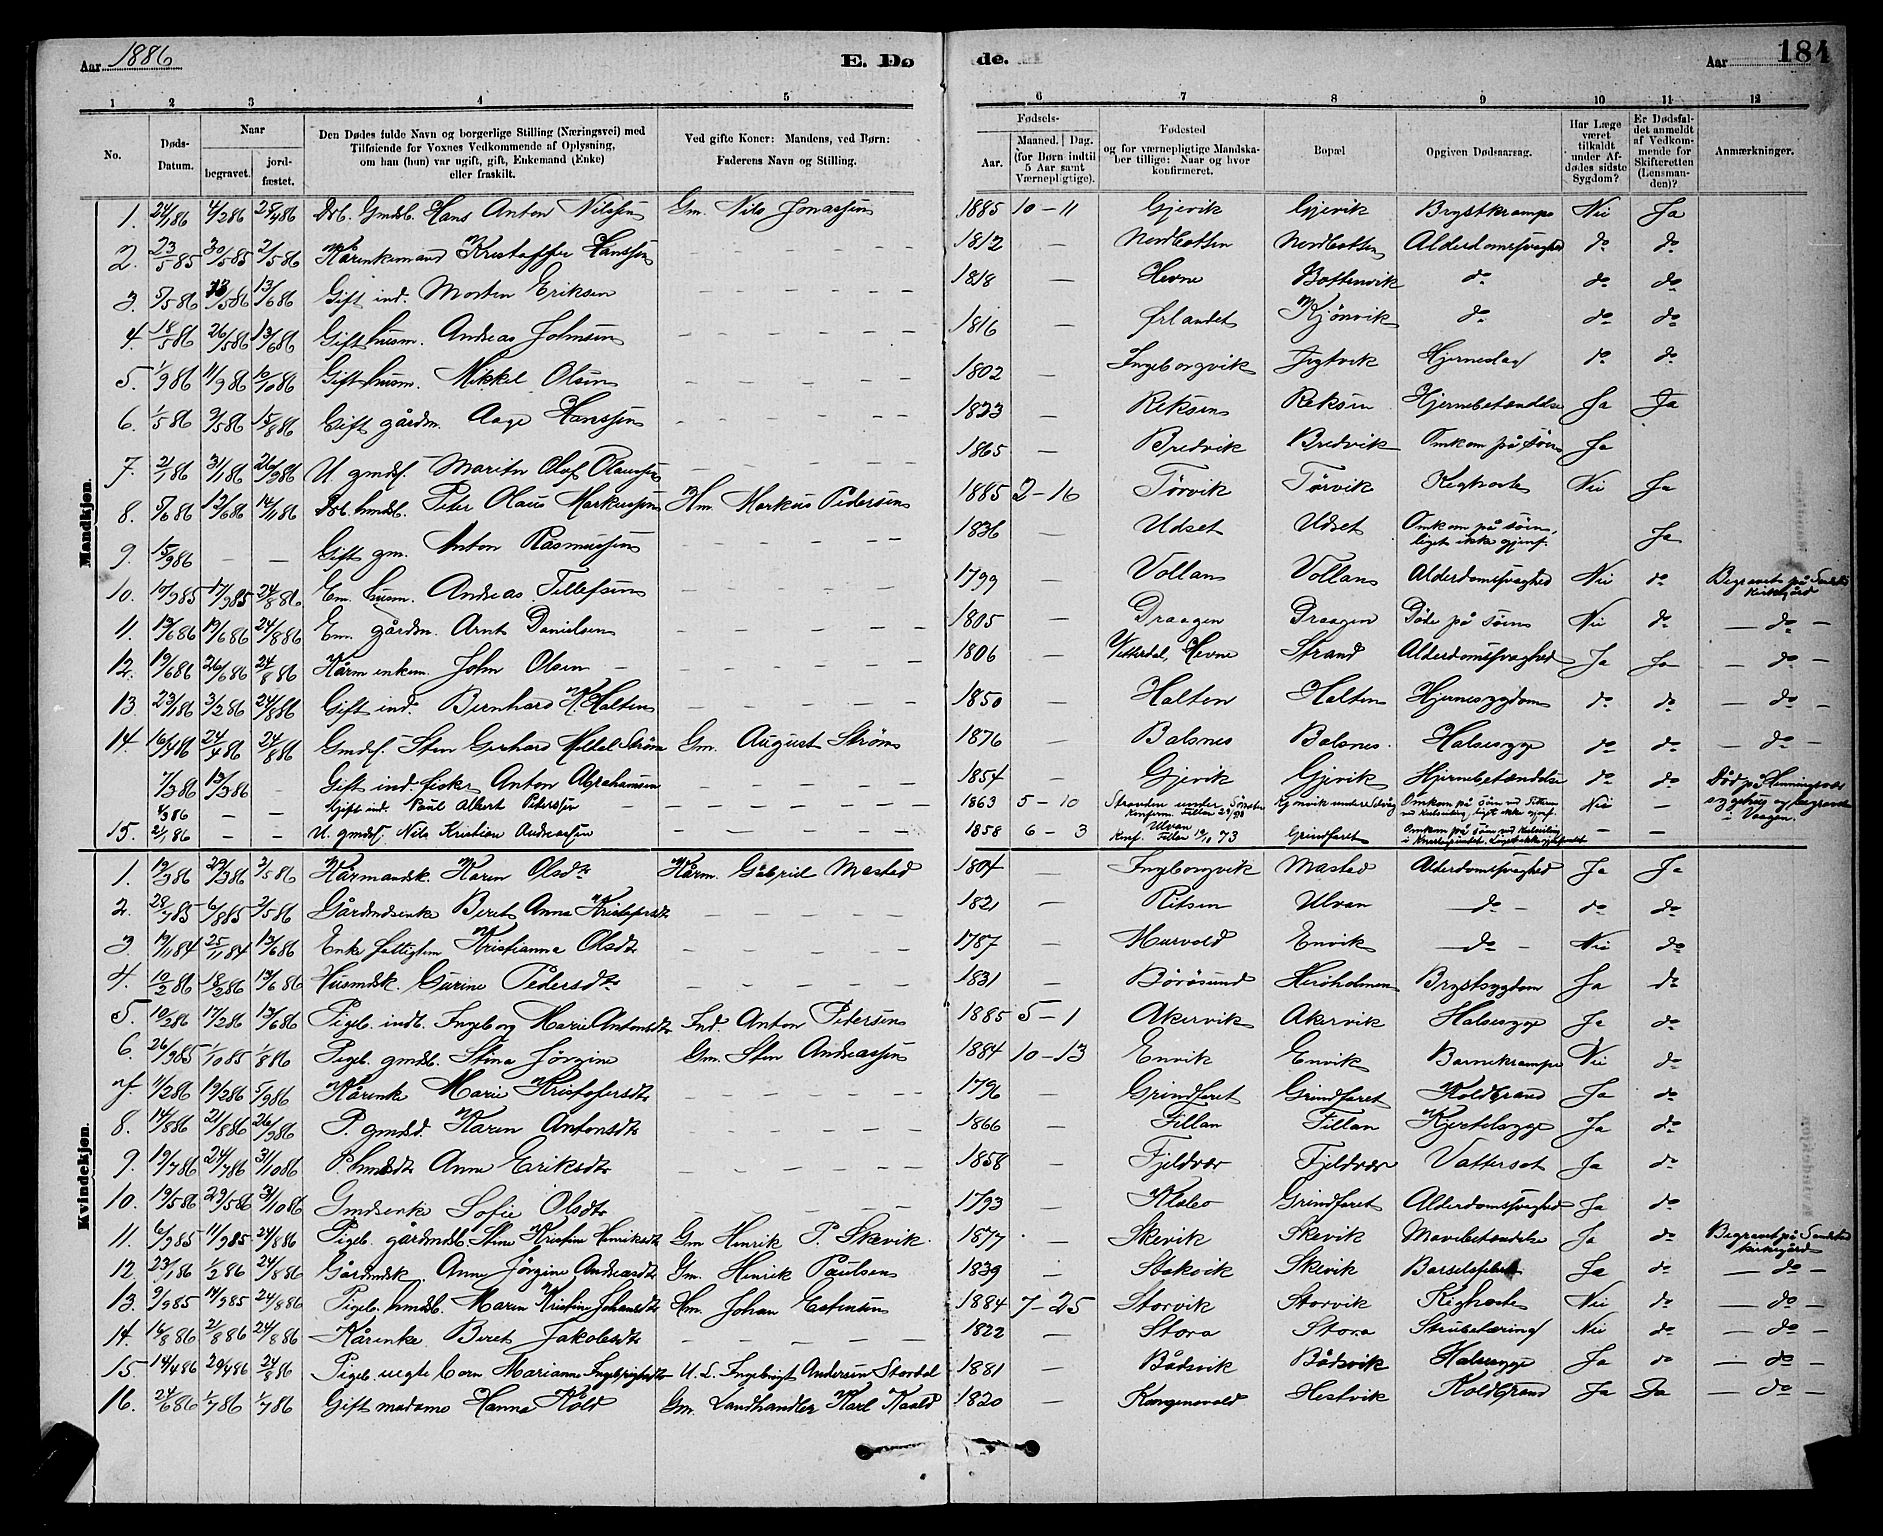 Aar 1886 E. Dø de. Aar 184
1 2 3 4 5 6 7 8 9 10 11 12
No. Døds-Datum. Naar begravet. jordfæstet. Den Dødes fulde Navn og borgerlige Stilling (Næringsvei) med Tilføiende for Voxnes Vedkommende af Oplysning, om han (hun) var ugift, gift, Enkemand (Enke) eller fraskilt. Ved gifte Koner: Mandens, ved Børn: Faderens Navn og Stilling. Fødsels- Aar. Maaned. Dag. (for Børn indtil 5 Aar samt Værnepligtige). Fødested og for værnepligtige Mandskaber tillige: Naar og hvor konfirmeret. Bopæl. Opgiven Dødsaarsag. Har Læge været tilkaldt under Afdødes sidste Sygdom? Er Dødsfaldet anmeldt af Vedkommende for Skifteretten (Lensmanden)? Anmærkninger.
Mandkjøn.
1. 24/1 86 4/2 86 Drb. Gmdsb. Hans Anton Nilssen Gm. Nils Jonassen 1885 10-11 Gjevik Gjevik Brystkrampe Nei Ja
2. 23/5 85 30/5 85 2/5 86 Kårenkemand Kristoffer Hanssen 1812 — Nordbotten Nordbotten Alderdomssvaghed do do
3. 13/6 86 Gift ind. Morten Eriksen 1818 — Hevne Bottenvik do do do
4. 18/5 86 26/5 86 13/6 86 Gift husm. Andreas Johnsen 1816 — Ørlandet Kjønvik do do do
5. 1/9 86 11/9 86 10/10 86 Gift husm. Mikkel Olsen 1802 — Ingeborgvik Jegtvik Hjerneslag do do
6. 1/5 86 15/8 86 Gift gårdm. Aage Hanssen 1823 — Reksen Reksen Hjernebetændelse Ja Ja
7. 2/1 86 31/1 86 26/9 86 U. gmdsf. Martin Olaf Olaussen 1865 Bredvik Bredvik Omkom på søen Ja
8. 12/6 86 14/11 86 Drb. hmdsb. Peter Olaus Markussen Hm. Markus Pedersen 1885 2-16 Tørvik Tørvik Kighoste Nei Ja
9. 15/9 86 — — Gift gm. Anton Rasmussen 1836 — Udset Udset Omkom på søen, liget ikke gjenf. Ja
10. 10/9 85 17/9 85 24/8 86 Em. husm. Andreas Tillefsen 1799 — Vollan Vollan Alderdomssvaghed Nei do Begravet på Sandstad kirkegård
11. 12/6 86 19/6 86 24/8 86 Em. gårdm. Arnt Danielsen 1805 — Draagen Draagen Døde på søen Nei do — do —
12. 19/6 86 26/6 86 24/8 86 Kårm. enkem. John Olsen 1806 — Hevne Strand Alderdomssvaghed Ja Ja — do —
13. 23/1 86 3/2 86 24/8 86 Gift ind. Bernhard K. Halten 1850 — Halten Halten Hjernesygdom do do — do —
14. 16/4 86 24/4 86 24/8 86 Gmdsf. Sten Gerhard Strøm Gm. August Strøm 1876 — Balsnes Balsnes. Halssyge do do — do —
7/3 86 13/3 86 — Gift ind. fisker Anton Abrahamsen 1854 — Gjevik Gjevik Hjernebetændelse do do Død på Henningsvær
86 — — Gift ind. Paul Albert Peterssen 1863 5-10 Stranden under Kjønvik under Omkom på søen Nei — og begravet
15. 2/1 86 — — U. gmdsf. Nils Kristian Andreassen 1858 6-3 Ulvan Konf. Fillan 73 Grindfaret Omkom på søen — — i Vaagen.
Kvindekjøn.
1. 19/3 86 29/3 86 2/5 86 Kårmandsk. Karen Olsdtr Kårm. Gabriel Mastad 1804 — Ingeborgvik Mastad Alderdomssvaghed Ja Ja
2. 28/7 85 6/8 85 2/5 86 Gårdmdsenke Beret Anna Kristofersdtr 1821 — Ritsen Ulvan — do — do do
3. 19/11 84 25/11 84 13/6 86 Enke fattiglem Kristianna Olsdtr 1787 — Murvold Envik — do — Nei do
4. 10/2 86 18/2 86 13/6 86 Husmdsk. Gurine Pedersdtr 1831 — Börösund Heröholmen Brystsygdom Ja do
5. 10/2 86 17/2 86 13/6 86 Pigeb. indb. Ingeborg Marie Antonsdtr Ind. Anton Pedersen 1885 5-1 Akervik Akervik Halssyge Ja do
6. 26/9 85 1/10 85 1/8 86 Pigeb. gmdsb. Stina Jørgine Gm. Sten Andreassen 1884 10-13 Envik Envik Barnekrampe Nei do
7. 11/2 86 19/2 86 5/9 86 Kårenke Marie Kristofersdtr 1796 — Grindfaret Grindfaret Koldbrand Ja do
8. 14/8 86 21/8 86 26/9 86 P. gmdsd. Karen Antonsdtr 1866 — Fillan Fillan Kjertelsyge Ja do
9. 19/7 86 24/7 86 31/10 86 P. hmdsdtr Anne Eriksdtr 1858 — Fjeldvær Fjeldvær Vattersot Ja do
10. 19/5 86 29/5 86 31/10 86 Gmdsenke Sofie Olsdtr 1793 — Grindfaret Alderdomssvaghed Ja do
11. 6/9 85 11/9 85 24/8 86 Pigeb. gårdmdsb. Stine Kristine Henriksdtr Gm Henrik P. Skevik. 1877 — Skevik Skevik Mavebetændelse Ja do Begravet på Sandstad kirkegård
12. 23/1 86 1/2 86 24/8 86 Gårdmdsk. Anne Jørgine Andreasdtr Gm. Henrik Paulsen 1839 — Stakvik Skevik Barselfeber Ja do — do —
13. 9/9 85 14/9 85 24/8 86 Pigeb. hmdsb. Maren Kristine Johansdtr Hm. Johan Estensen 1884 7-25 Storvik Storvik Kighoste Nei do — do —
14. 16/8 86 21/8 86 24/8 86 Kårenke Beret Jakobsdtr 1822 — Stora Stora Strubetæring Nei do — do —
15. 14/4 86 29/4 86 24/8 86 Pigeb. uegte barn Marianne Ingebrigtsdtr U. L. Ingebrigt Andersen Stordal 1881 — Bådsvik Bådsvik Halssyge Ja do — do —
16. 24/6 86 1/7 86 1/7 86 Gift madame Hanna Kold Gm. Landhandler Karl Kaald 1820 — Kongensvold Hestvik Koldbrand Ja Ja — do —